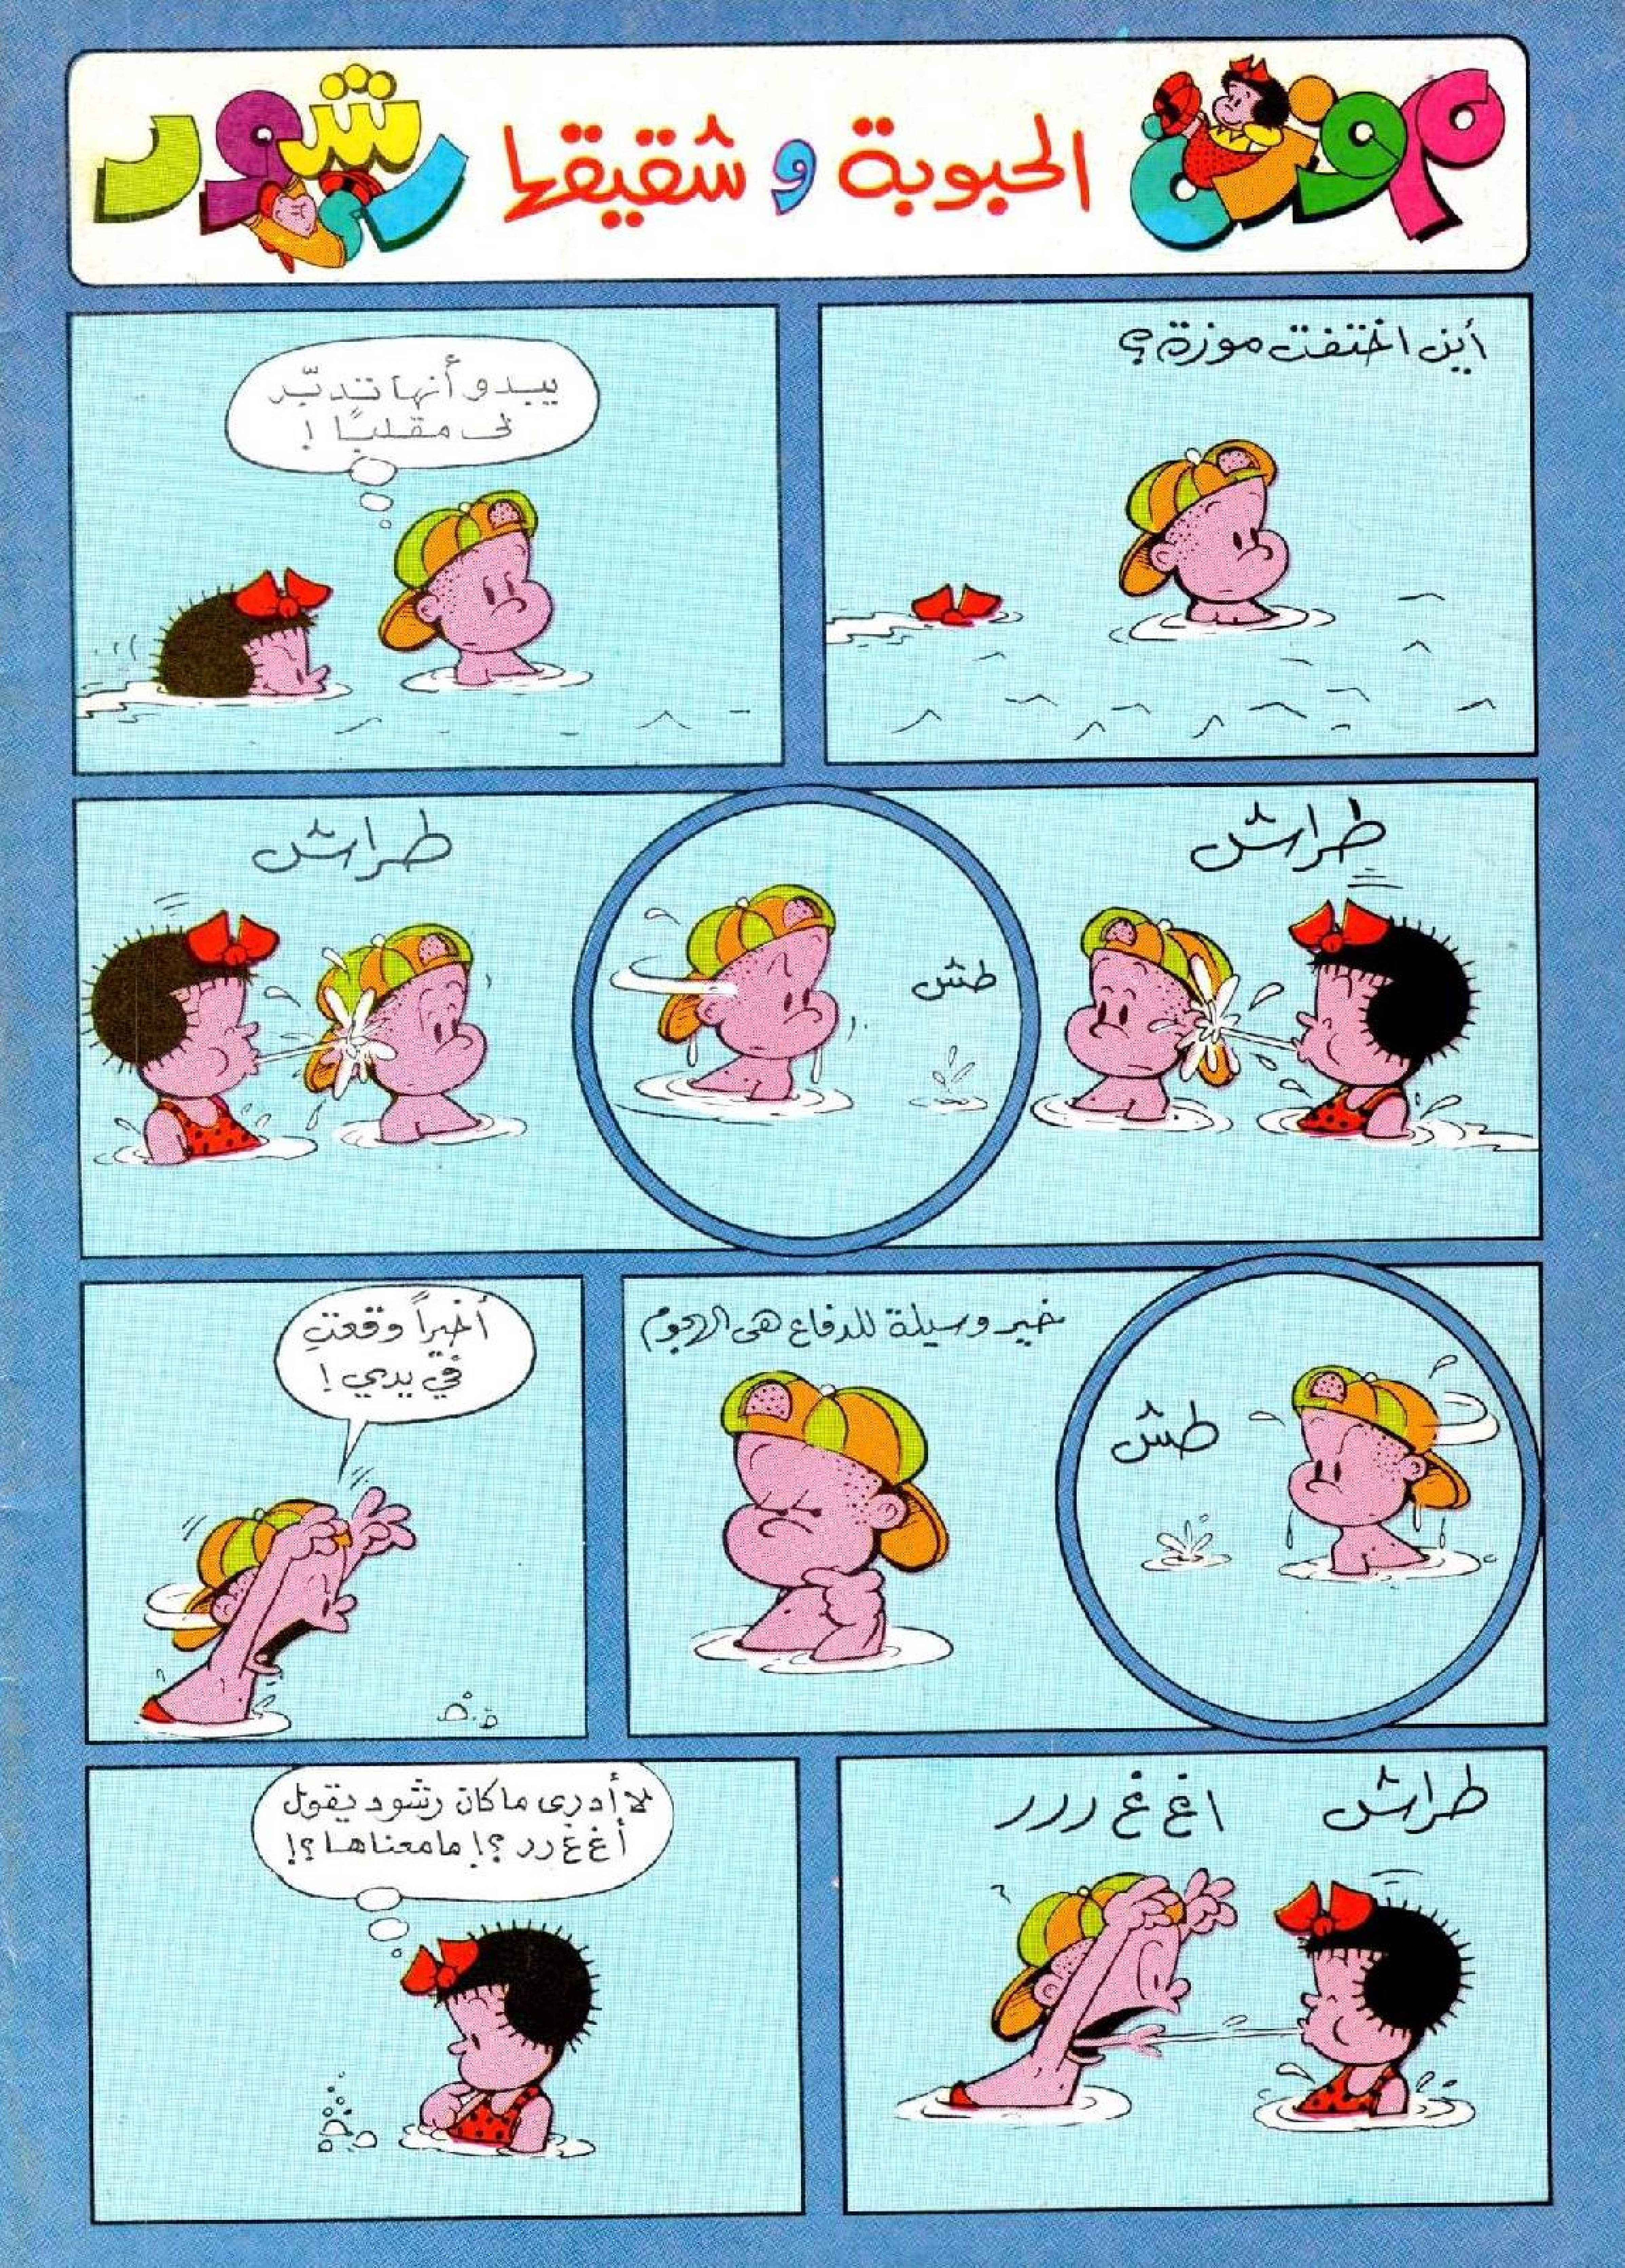 موزة الحبوبة و شقيقها رشود
أين اختفت موزة؟
يبدو أنها تدبّر
لى مقلبًا !
طراش
طش
طراش
طش
خير وسيلة للدفاع هى الهجوم
أخيراً وقعتِ
في يدي !
طراش
اغ غ ررر
لا أدرى ما كان رشود يقول
أغ غ رر ؟! ما معناها ؟!